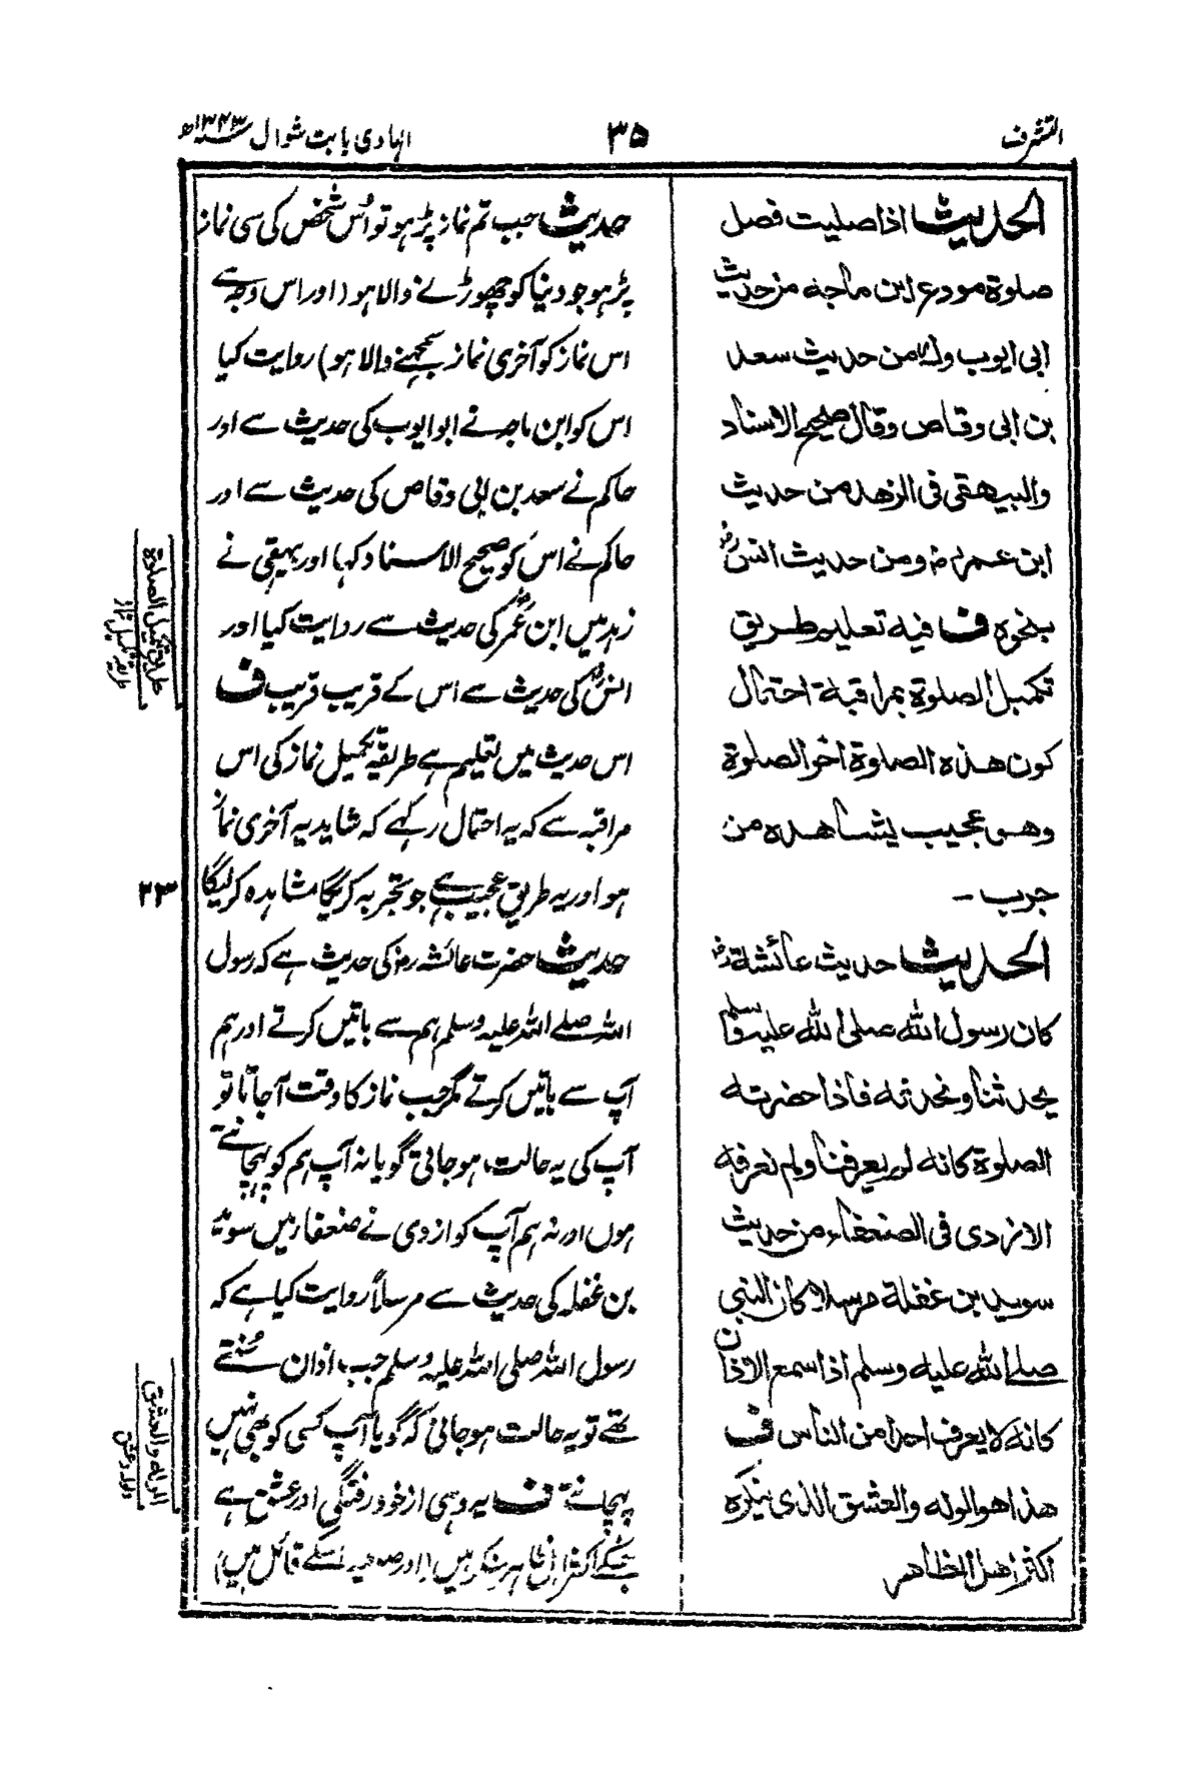 التشرف
۳۵
الہادی بابت شوال ۱۳۴۳ھ
الحدیث اذا صلیت فصل
صلوة مودع ابن ماجه من حدیث
ابی ایوب وله من حدیث سعد
بن ابی وقاص وقال صحیح الاسناد
والبیهقی فی الزهد من حدیث
ابن عمر رض ومن حدیث انس رض
بنحوه ف فیه تعلیم طریق
تکمیل الصلوة بمراقبة احتمال
کون هذه الصلوة اخر الصلوة
وهو عجیب یشاهده من
جرب ۔
الحدیث حدیث عائشة رض
کان رسول الله صلی الله علیه وسلم
یحدثنا ونحدثه فاذا حضرته
الصلوة کانه لم یعرفنا ولم نعرفه
الازدی فی الضعفاء من حدیث
سوید بن غفلة مرسلا کان النبی
صلے الله علیه وسلم اذا سمع الاذان
کانه لا یعرف احدا من الناس ف
هذا هو الوله والعشق الذی ینکره
اکثر اهل الظاهر
حدیث جب تم نماز پڑہو تو اُس شخص کی سی نماز
پڑہو جو دنیا کو چھوڑنے والا ہو (اور اس وجہ سے
اس نماز کو آخری نماز سمجہنے والا ہو) روایت کیا
اس کو ابن ماجہ نے ابو ایوب کی حدیث سے اور
حاکم نے سعد بن ابی وقاص کی حدیث سے اور
حاکم نے اس کو صحیح الاسناد کہا اور بیہقی نے
زہد میں ابن عمر رض کی حدیث سے روایت کیا اور
انس رض کی حدیث سے اس کے قریب قریب ف
اس حدیث میں تعلیم ہے طریقہ تکمیل نماز کی اس
مراقبہ سے کہ یہ احتمال رکہے کہ شاید یہ آخری نماز
ہو اور یہ طریق عجیب ہے جو تجربہ کریگا مشاہدہ کرلیگا
حدیث حضرت عائشہ رض کی حدیث ہے کہ رسول
اللہ صلے اللہ علیہ وسلم ہم سے باتیں کرتے اور ہم
آپ سے باتیں کرتے مگر جب نماز کا وقت آجاتا تو
آپ کی یہ حالت ہوجاتی گویا نہ آپ ہم کو پہچانتے
ہوں اور نہ ہم آپ کو ازدی نے ضعفار میں سوید
بن غفلہ کی حدیث سے مرسلاً روایت کیا ہے کہ
رسول اللہ صلی اللہ علیہ وسلم جب اذان سُنتے
تھے تو یہ حالت ہوجاتی کہ گویا آپ کسی کو بھی نہیں
پہچانتے ف یہ وہی از خود رفتگی اور عشق ہے
جسکے اکثر اہل ظاہر منکر ہیں (اور صوفیہ اسکے قائل ہیں)
طریق تکمیل الصلوة
طریقہ تکمیل نماز
۲۳
الوله والعشق
ولہ و عشق